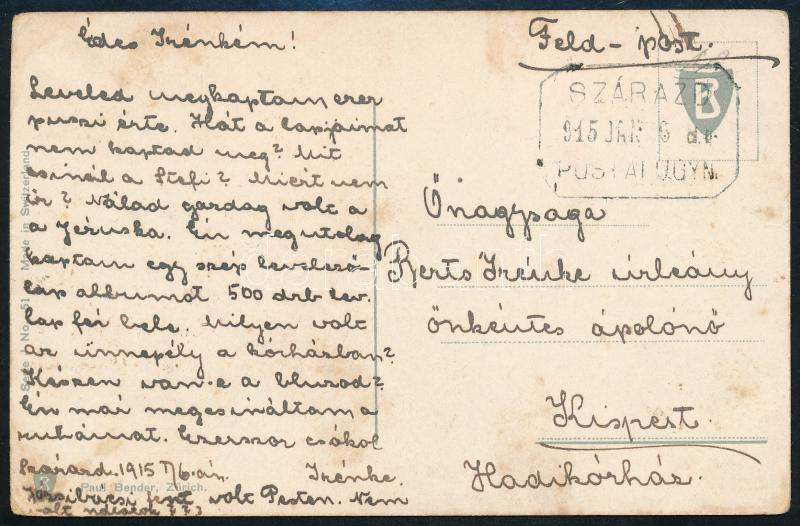 Édes Irénkém!
Leveled megkaptam ezer
puszi érte. Hát a lapjaimat
nem kaptad meg? Mit
csinál a Stefi? Miért nem
ír? Nálad gazdag volt a
a Jézuska. Én meg utolag
kaptam egy szép levelező-
lap albumot 500 drb lev.
lap fér bele. Milyen volt
az ünnepély a kórházban?
Készen van-e a bluzod?
Én mai megcsináltam a
ruhámat. Ezerszer csókol
Szárazd. 1915 I/6-án. Irénke.
Józsibácsi volt Pesten. Nem
volt nálatok???
Feld-post.
SZÁRAZD
915 JAN 6
POSTAI ÜGYN.
B
Őnagysága
Berts Irénke úrleány
önkéntes ápolónő
Kispest.
Hadikórház.
Serie No. 51 Made in Switzerland
Paul Bender, Zürich.